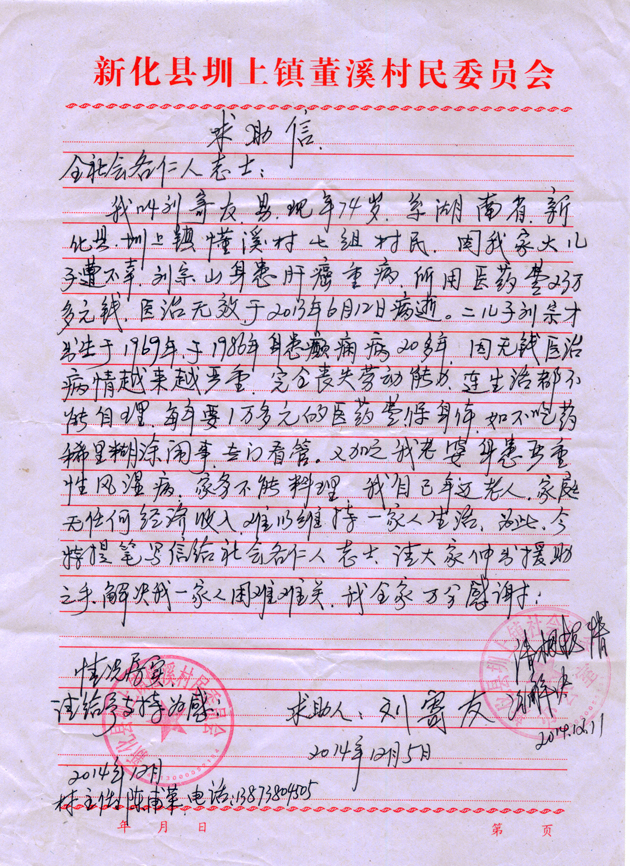 新化县圳上镇董溪村民委员会
求助信
全社会各仁人志士：
我叫刘寄友，男，现年74岁，系湖南省，新
化县，圳上镇懂溪村七组村民，因我家大儿
子遭不幸，刘宗山身患肝癌重病所用医药费23万
多元钱，医治无效于2013年6月12日病逝。二儿子刘宗才
出生于1969年，于1986年身患癫痫病20多年，因无钱医治
病情越来越严重，完全丧失劳动能力，连生活都不
能自理，每年要1万多元的医药费保身体，如不吃药
稀里糊涂闹事，专门看管。又加之我老婆身患严重
性风湿病，家务不能料理，我自己年迈老人，家庭
无任何经济收入，难以维持一家人生活，为此，今
特提笔写信给社会各仁人志士，请大家伸出援助
之手，解决我一家人困难难关，我全家万分感谢！
情况属实
请给予支持为感！
2014年12月
村主任：陈甫荣 电话：13873804505
求助人：刘寄友
2014年12月5日
请根据情
解决
2014.12.11
年 月 日
第 页